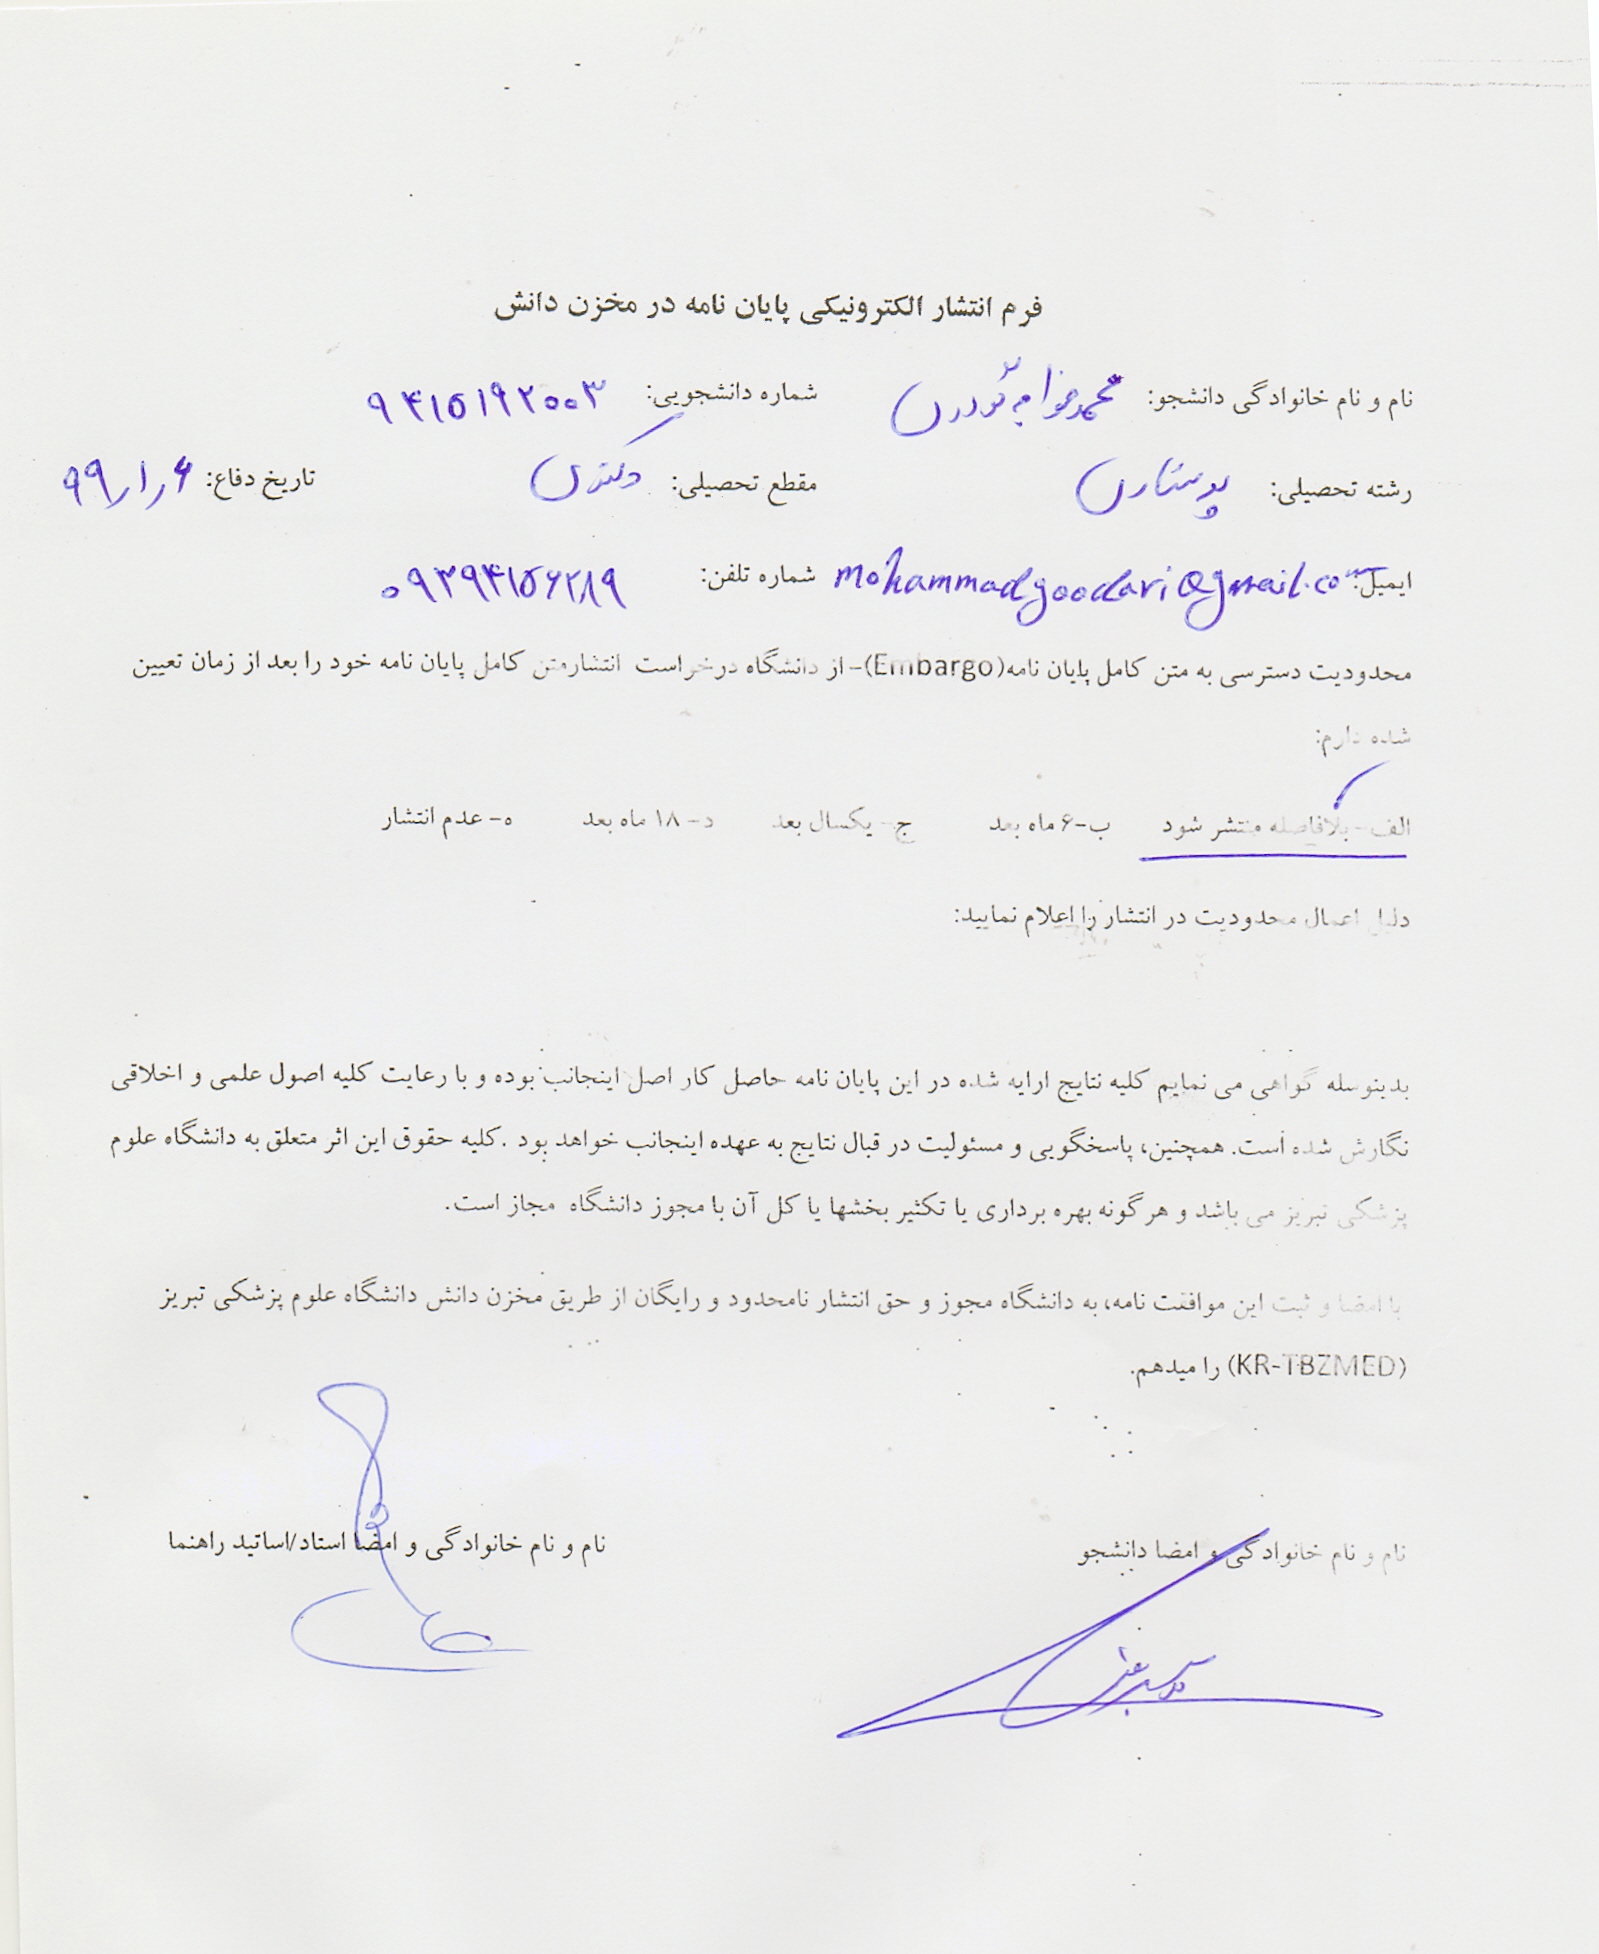 فرم انتشار الکترونیکی پایان نامه در مخزن دانش
نام و نام خانوادگی دانشجو: محمد خواجه گودری شماره دانشجویی: ۹۴۱۵۱۹۲۰۰۳
رشته تحصیلی: پرستاری مقطع تحصیلی: دکتری تاریخ دفاع: ۹۹/۱/۶
ایمیل: mohammadgoodari@gmail.com شماره تلفن: ۰۹۳۹۴۱۵۶۲۸۹
محدودیت دسترسی به متن کامل پایان نامه(Embargo)- از دانشگاه درخراست انتشارمتن کامل پایان نامه خود را بعد از زمان تعیین
شده دارم:
الف- بلافاصله منتشر شود ب-۶ ماه بعد ج- یکسال بعد د- ۱۸ ماه بعد ه- عدم انتشار
دلیل اعمال محدودیت در انتشار را اعلام نمایید:
بدینوسله گواهی می نمایم کلیه نتایج ارایه شده در این پایان نامه حاصل کار اصل اینجانب بوده و با رعایت کلیه اصول علمی و اخلاقی
نگارش شده است. همچنین، پاسخگویی و مسئولیت در قبال نتایج به عهده اینجانب خواهد بود .کلیه حقوق این اثر متعلق به دانشگاه علوم
پزشکی تبریز می باشد و هرگونه بهره برداری یا تکثیر بخشها یا کل آن با مجوز دانشگاه مجاز است.
با امضا و ثبت این موافقت نامه، به دانشگاه مجوز و حق انتشار نامحدود و رایگان از طریق مخزن دانش دانشگاه علوم پزشکی تبریز
(KR-TBZMED) را میدهم.
نام و نام خانوادگی و امضا دانشجو نام و نام خانوادگی و امضا استاد/اساتید راهنما